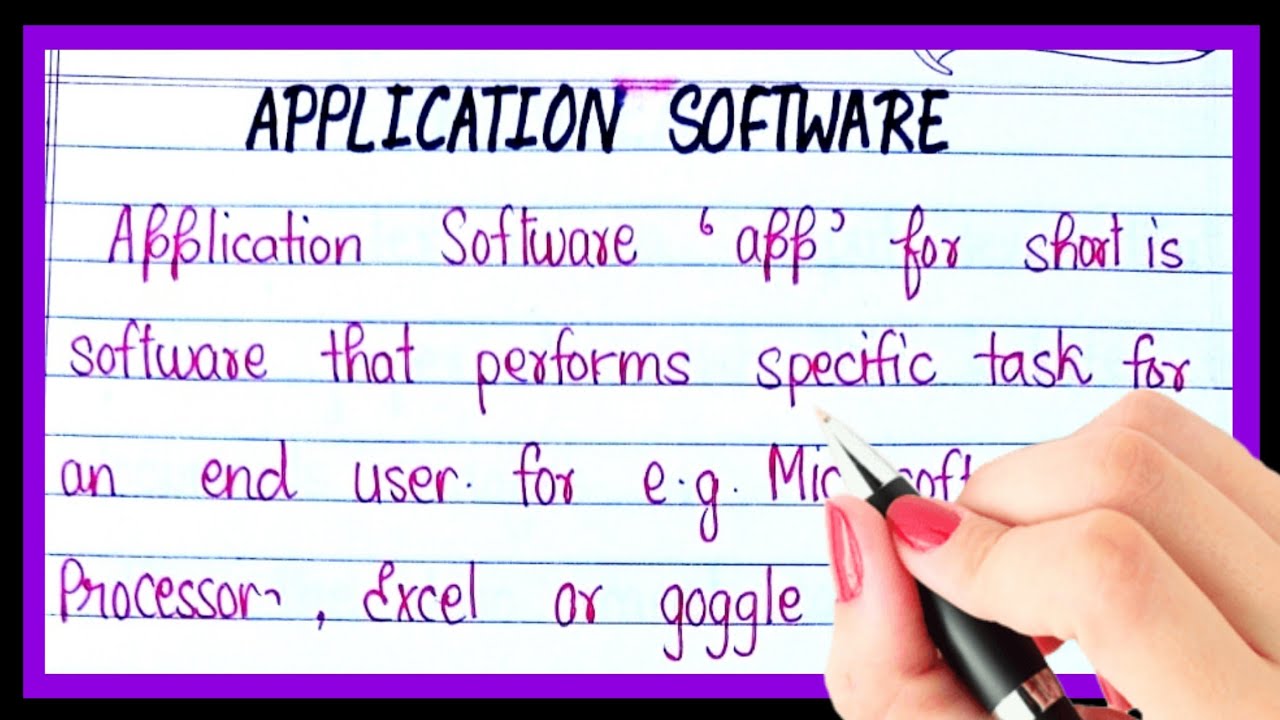 APPLICATION SOFTWARE
Application Software ‘app’ for short is
software that performs specific task for
an end user. for e.g.
Processor, Excel or goggle